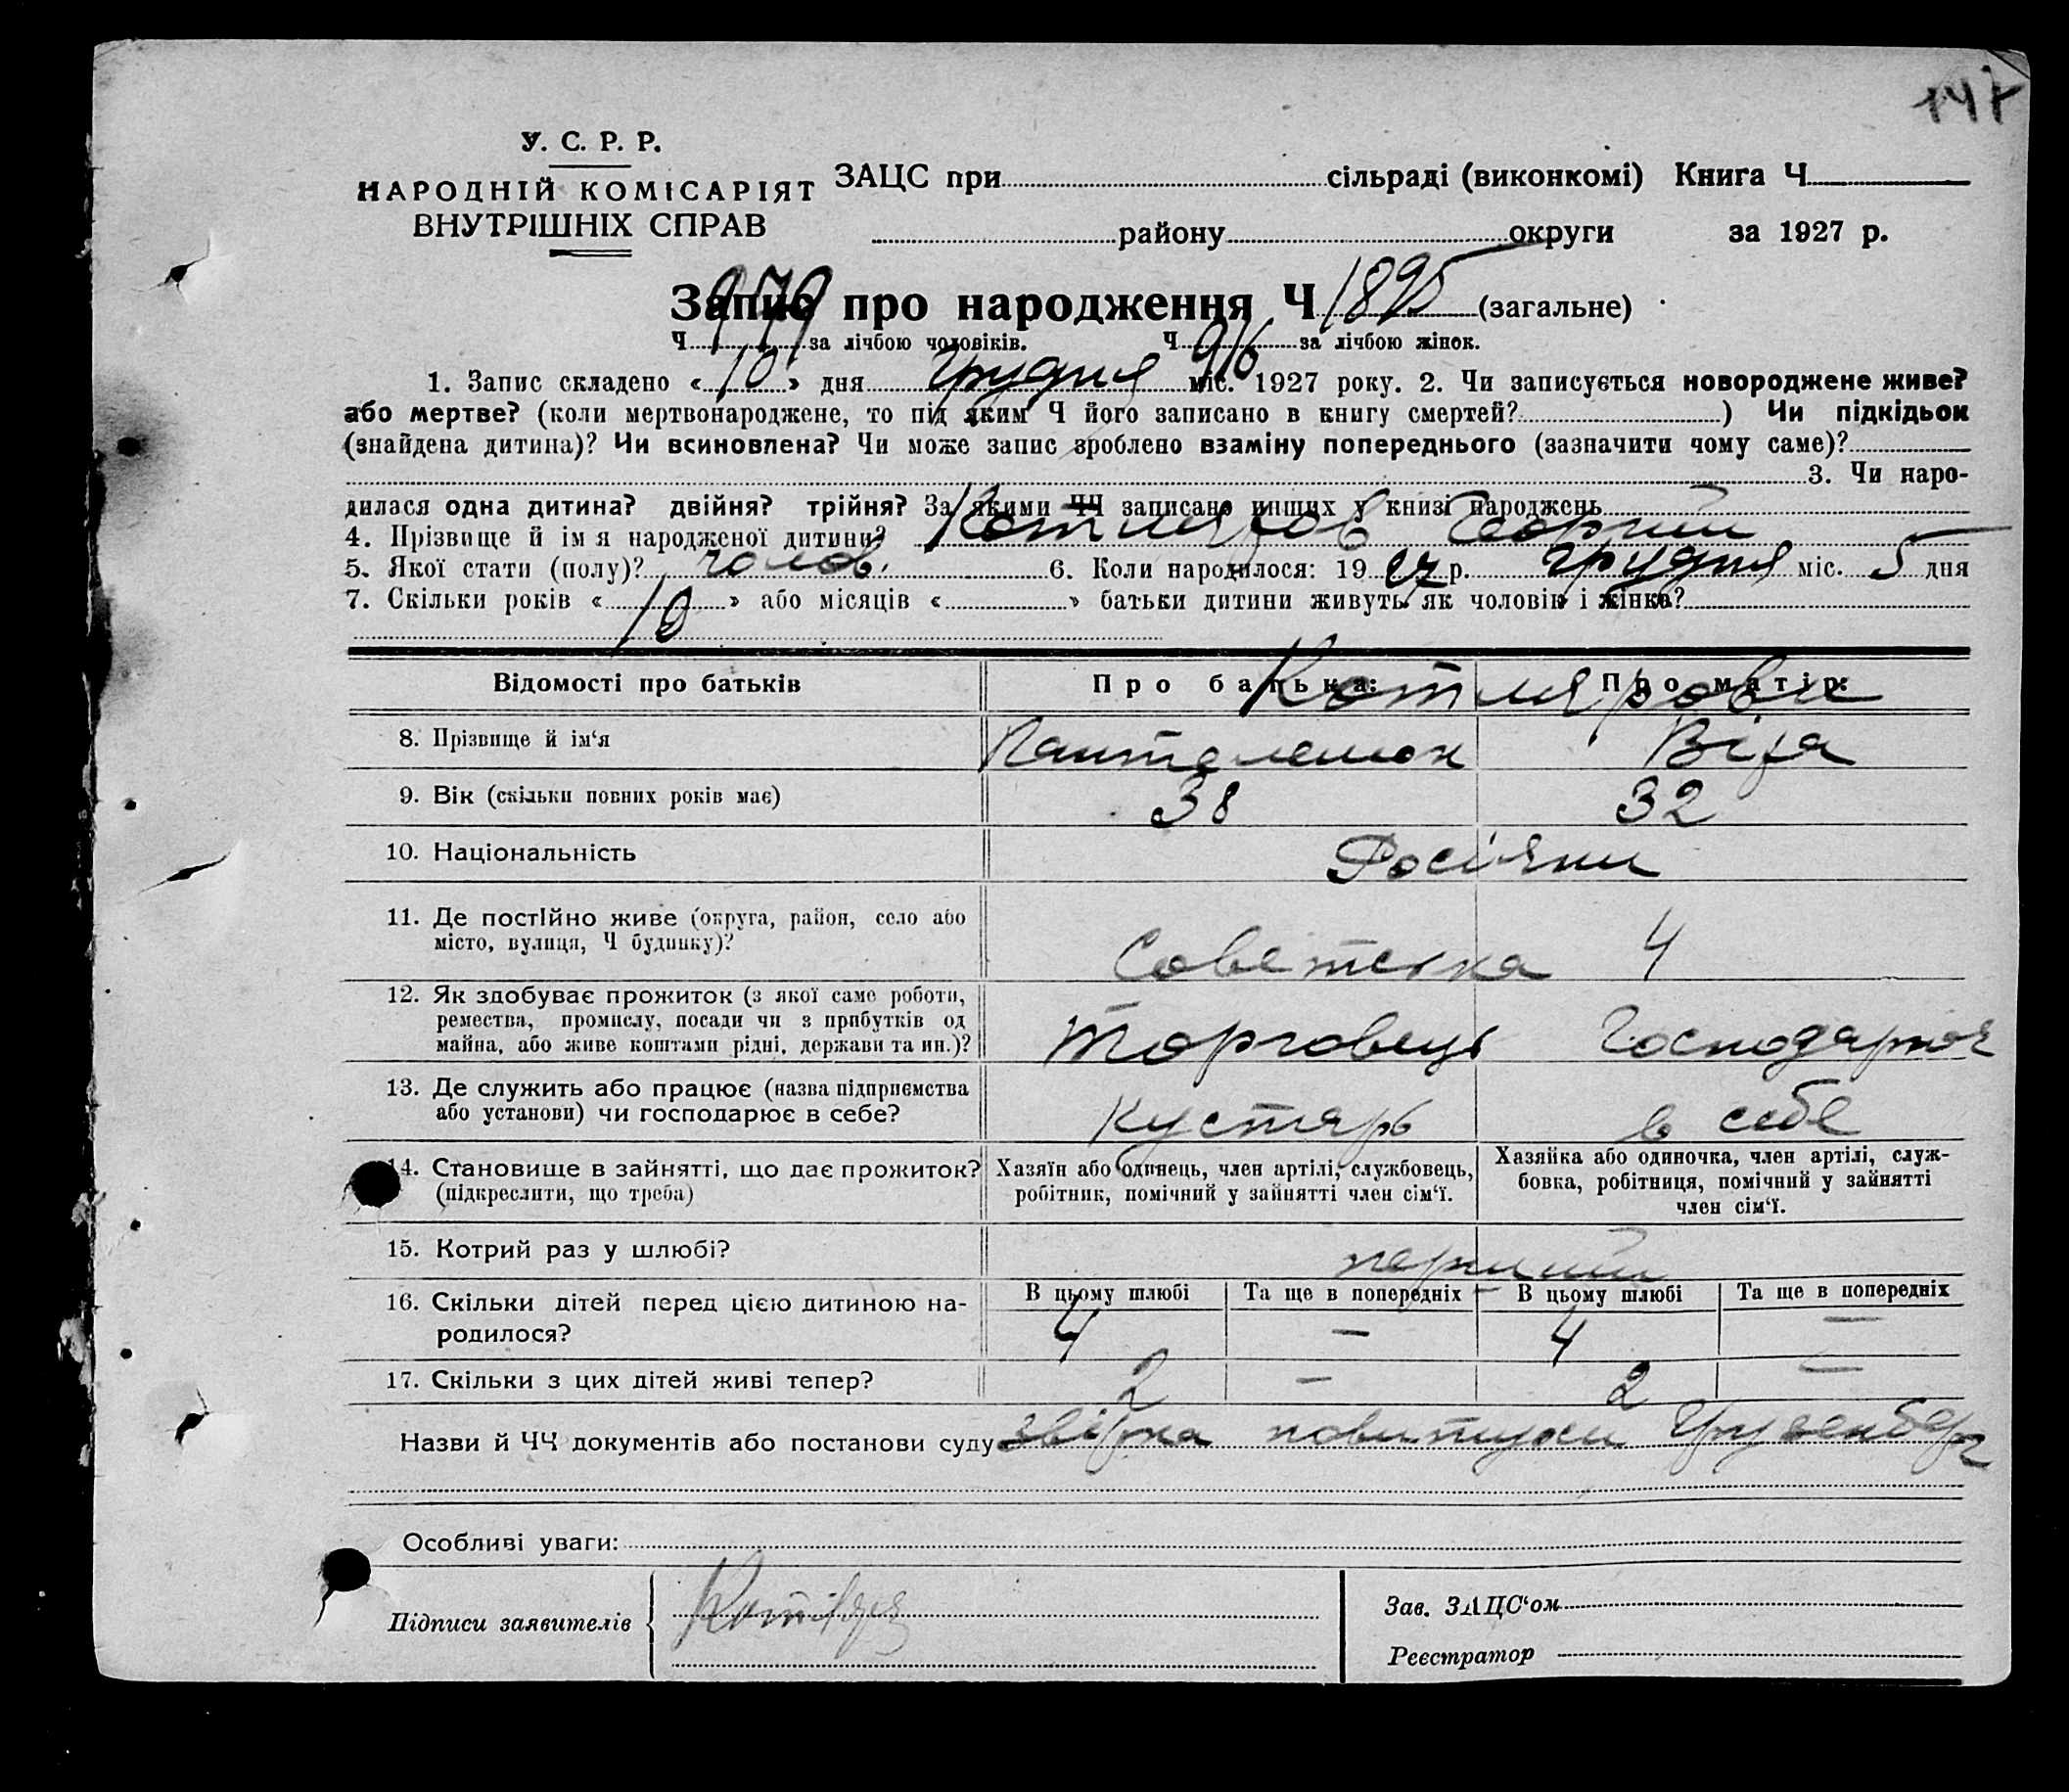 147
У. С. Р. Р.
НАРОДНІЙ КОМІСАРІЯТ
ВНУТРІШНІХ СПРАВ
ЗАЦС при сільраді (виконкомі) Книга Ч
району округи за 1927 р.
Запис про народження Ч 1895 (загальне)
Ч 979 за лічбою чоловіків. Ч 916 за лічбою жінок.
1. Запис складено « 10 » дня Грудня міс. 1927 року. 2. Чи записується новороджене живе?
або мертве? (коли мертвонароджене, то під яким Ч його записано в книгу смертей? ) Чи підкідьок
(знайдена дитина)? Чи всиновлена? Чи може запис зроблено взаміну попереднього (зазначити чому саме)?
3. Чи наро-
дилася одна дитина? двійня? трійня? За якими ЧЧ записано инших у книзі народжень
4. Прізвище й ім я народженої дитини? Котляров Георгий
5. Якої стати (полу)? чолов. 6. Коли народилося: 19 27 р. грудня міс. 5 дня
7. Скільки років « 10 » або місяців « » батьки дитини живуть як чоловік і жінка?
Відомості про батьків Про батька: Про матір:
Котлярови
8. Прізвище й ім‘я Пантелемон Віра
9. Вік (скільки повних років має) 38 32
10. Національність Росіяни
11. Де постійно живе (округа, район, село або
місто, вулиця, Ч будинку)? Советська 4
12. Як здобуває прожиток (з якої саме роботи,
ремества, промислу, посади чи з прибутків од
майна, або живе коштами рідні, держави та ин.)? Торговець Господарює
13. Де служить або працює (назва підприємства
або установи) чи господарює в себе? Кустарь в себе
14. Становище в зайнятті, що дає прожиток?
(підкреслити, що треба)
Хазяїн або одинець, член артілі, службовець,
робітник, помічний у зайнятті член сім‘ї.
Хазяйка або одиночка, член артілі, служ-
бовка, робітниця, помічний у зайнятті
член сім‘ї.
15. Котрий раз у шлюбі? перший
16. Скільки дітей перед цією дитиною на-
родилося?
В цьому шлюбі Та ще в попередніх В цьому шлюбі Та ще в попередніх
4 — 4 —
17. Скільки з цих дітей живі тепер? 2 — 2 —
Назви й ЧЧ документів або постанови суду звірка повитухи Грузенберг
Особливі уваги:
Підписи заявителів
Зав. ЗАЦС‘ом
Реєстратор